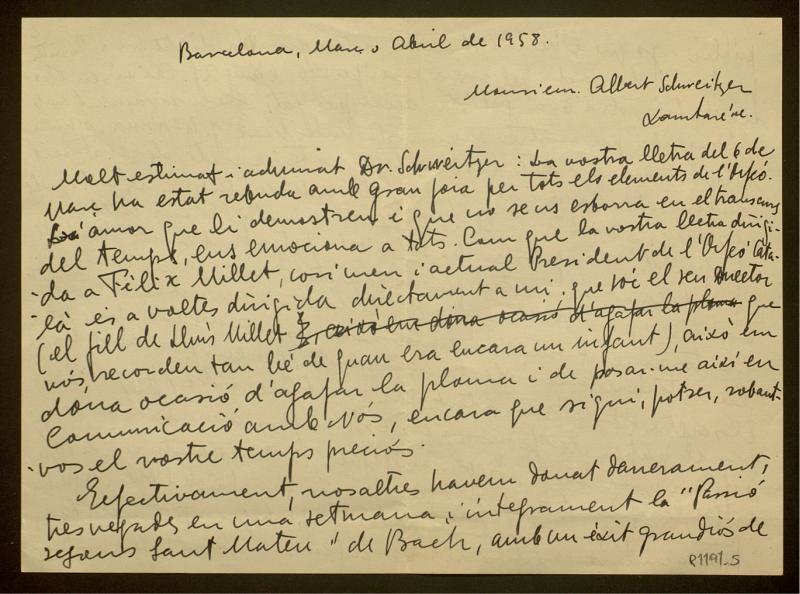 Barcelona, Març o Abril de 1958.
Monsieur. Albert Schweitzer
Lambaréne.
Molt estimat i admirat Dr. Schweitzer: La vostra lletra del 6 de
Març ha estat rebuda amb gran joia per tots els elements de l'Orfeó.
L'amor que li demostreu i que no se us esborra en el transcurs
del temps, ens emociona a tots. Com que la vostra lletra dirigi-
-da a Fèlix Millet, cosí meu i actual President de l'Orfeó Cata-
là és a voltes dirigida directament a mi, que sóc el seu Director
(el fill de Lluís Millet que
vós recordeu tan bé de quan era encara un infant), això em
dona ocasió d'agafar la ploma i de posar-me així en
Comunicació amb Vós, encara que sigui, potser, robant-
-vos el vostre temps preciós.
Efectivament, nosaltres havem donat darrerament,
tres vegades en una setmana, i íntegrament la "Passió
segons Sant Mateu" de Bach, amb un èxit grandiós de
P1191_5